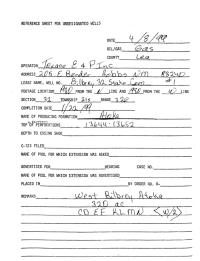 REFERENCE SHEET FOR UNDESIGNATED WELLS
DATE 4/8/99
OIL/GAS Gas
COUNTY Lea
OPERATOR Texaco E & P Inc
ADDRESS 205 E Bender Hobbs NM 88240
LEASE NAME, WELL NO. Bilbrey 32 State Com #1
FOOTAGE LOCATION FROM THE N LINE AND FROM THE W LINE
SECTION 32 TOWNSHIP 21S RANGE 32E
COMPLETION DATE 1/22/99
NAME OF PRODUCING FORMATION Atoka
TOP OF PERFORATIONS 13644-13652
DEPTH TO CASING SHOE
C-123 FILED
NAME OF POOL FOR WHICH EXTENSION WAS ASKED
ADVERTISED FOR HEARING CASE NO.
NAME OF POOL FOR WHICH EXTENSION WAS ADVERTISED
PLACED IN BY ORDER NO. R-
REMARKS West Bilbrey Atoka
320 ac
CD EF KL MN (W/2)